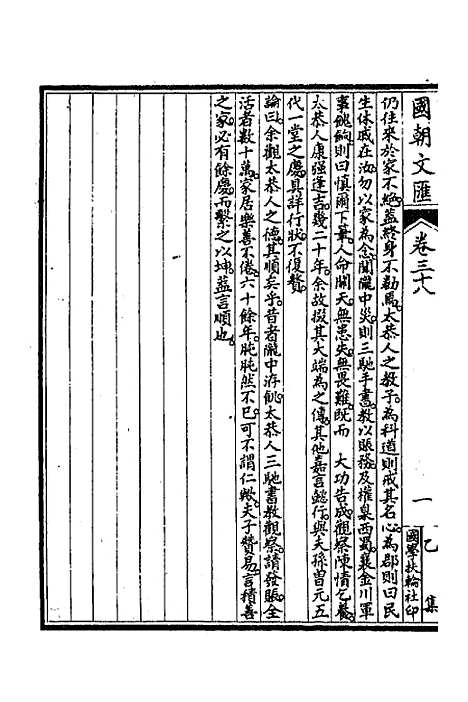 國朝文匯
卷三十八
一
乙集
國學扶輪社印
仍往來於家不絕蓋終身不勌焉太恭人之教子為科道則戒其名心為郡則曰民
生休戚在汝勿以家為念聞隴中災則三馳手書教以賑務及權臬西蜀襄金川軍
事餽餉則曰慎爾下葦人命關天無患失無畏難既而 大功告成觀察陳情乞養
太恭人康強逢吉幾二十年余故掇其大端為之傳其他嘉言懿行與夫孫曾元五
代一堂之慶具詳行狀不復贅
論曰余觀太恭人之德其順矣乎昔者隴中洊飢太恭人三馳書教觀察請發賑全
活者數十萬家居樂善不倦六十餘年肫肫然不已可不謂仁歟夫子贊易言積善
之家必有餘慶而繫之以坤蓋言順也